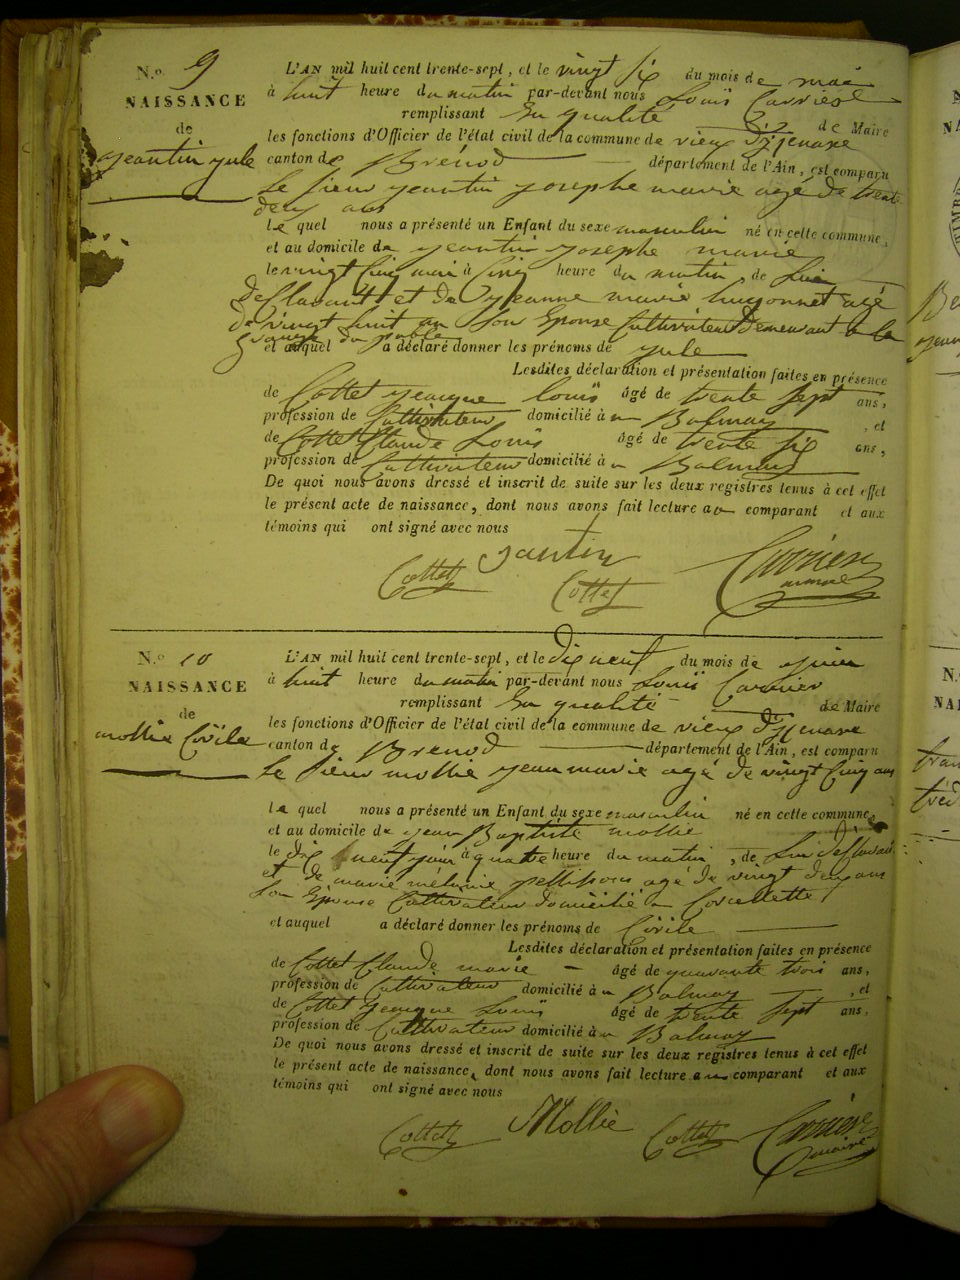 N.o 9
NAISSANCE
de
yeantin yule
L'AN mil huit cent trente-sept, et le vingt six du mois de mai
à huit heure du matin par-devant nous Louis Carrier
remplissant En qualité de Maire
les fonctions d'Officier de l'état civil de la commune de vieux d'izenave
canton de Brénod département de l'Ain, est comparu
Le sieur yeantin yosephe marie agé de trente
deux ans
lequel nous a présenté un Enfant du sexe masculin né en cette commune,
et au domicile de yeantin yosephe marie
le vingt Cinq mai à Cinq heure du matin, de Lui
déclarant et de yeanne marie hugonnet agé
de vingt huit an Son Epouse Cultivateur Demeurant a la
grange du
et auquel a déclaré donner les prénoms de yule
Lesdites déclaration et présentation faites en présence
de Cottet yeacque Louis âgé de trente sept ans,
profession de Cultivateur domicilié à Balmay, et
de Cottet Claude Louis âgé de trente six ans,
profession de Cultivateur domicilié à Balmay
De quoi nous avons dressé et inscrit de suite sur les deux registres tenus à cet effet
le présent acte de naissance, dont nous avons fait lecture au comparant et aux
témoins qui ont signé avec nous
Jantin
Cottet Cottet Carrier
maire
N.o 10
NAISSANCE
de
mollie Cirile
L'AN mil huit cent trente-sept, et le dix neuf du mois de yuin
à huit heure du matin par-devant nous Louis Carrier
remplissant En qualité de Maire
les fonctions d'Officier de l'état civil de la commune de vieux d'izenave
canton de Brenod département de l'Ain, est comparu
Le sieur mollie yean marie agé de vingt Cinq ans
lequel nous a présenté un Enfant du sexe masculin né en cette commune,
et au domicile de yean Baptiste mollie
le dix neuf yuin à quatre heure du matin, de Lui déclarant
et de marie mélanie pellisson agé de vingt deux ans
Son Epouse Cultivateur domicilié a Corcellette
et auquel a déclaré donner les prénoms de Cirile
Lesdites déclaration et présentation faites en présence
de Cottet Claude marie âgé de quarante trois ans,
profession de Cultivateur domicilié à Balmay, et
de Cottet yeacque Louis âgé de trente sept ans,
profession de Cultivateur domicilié à Balmay
De quoi nous avons dressé et inscrit de suite sur les deux registres tenus à cet effet
le présent acte de naissance, dont nous avons fait lecture au comparant et aux
témoins qui ont signé avec nous
Cottet Mollie Cottet Carrier
maire